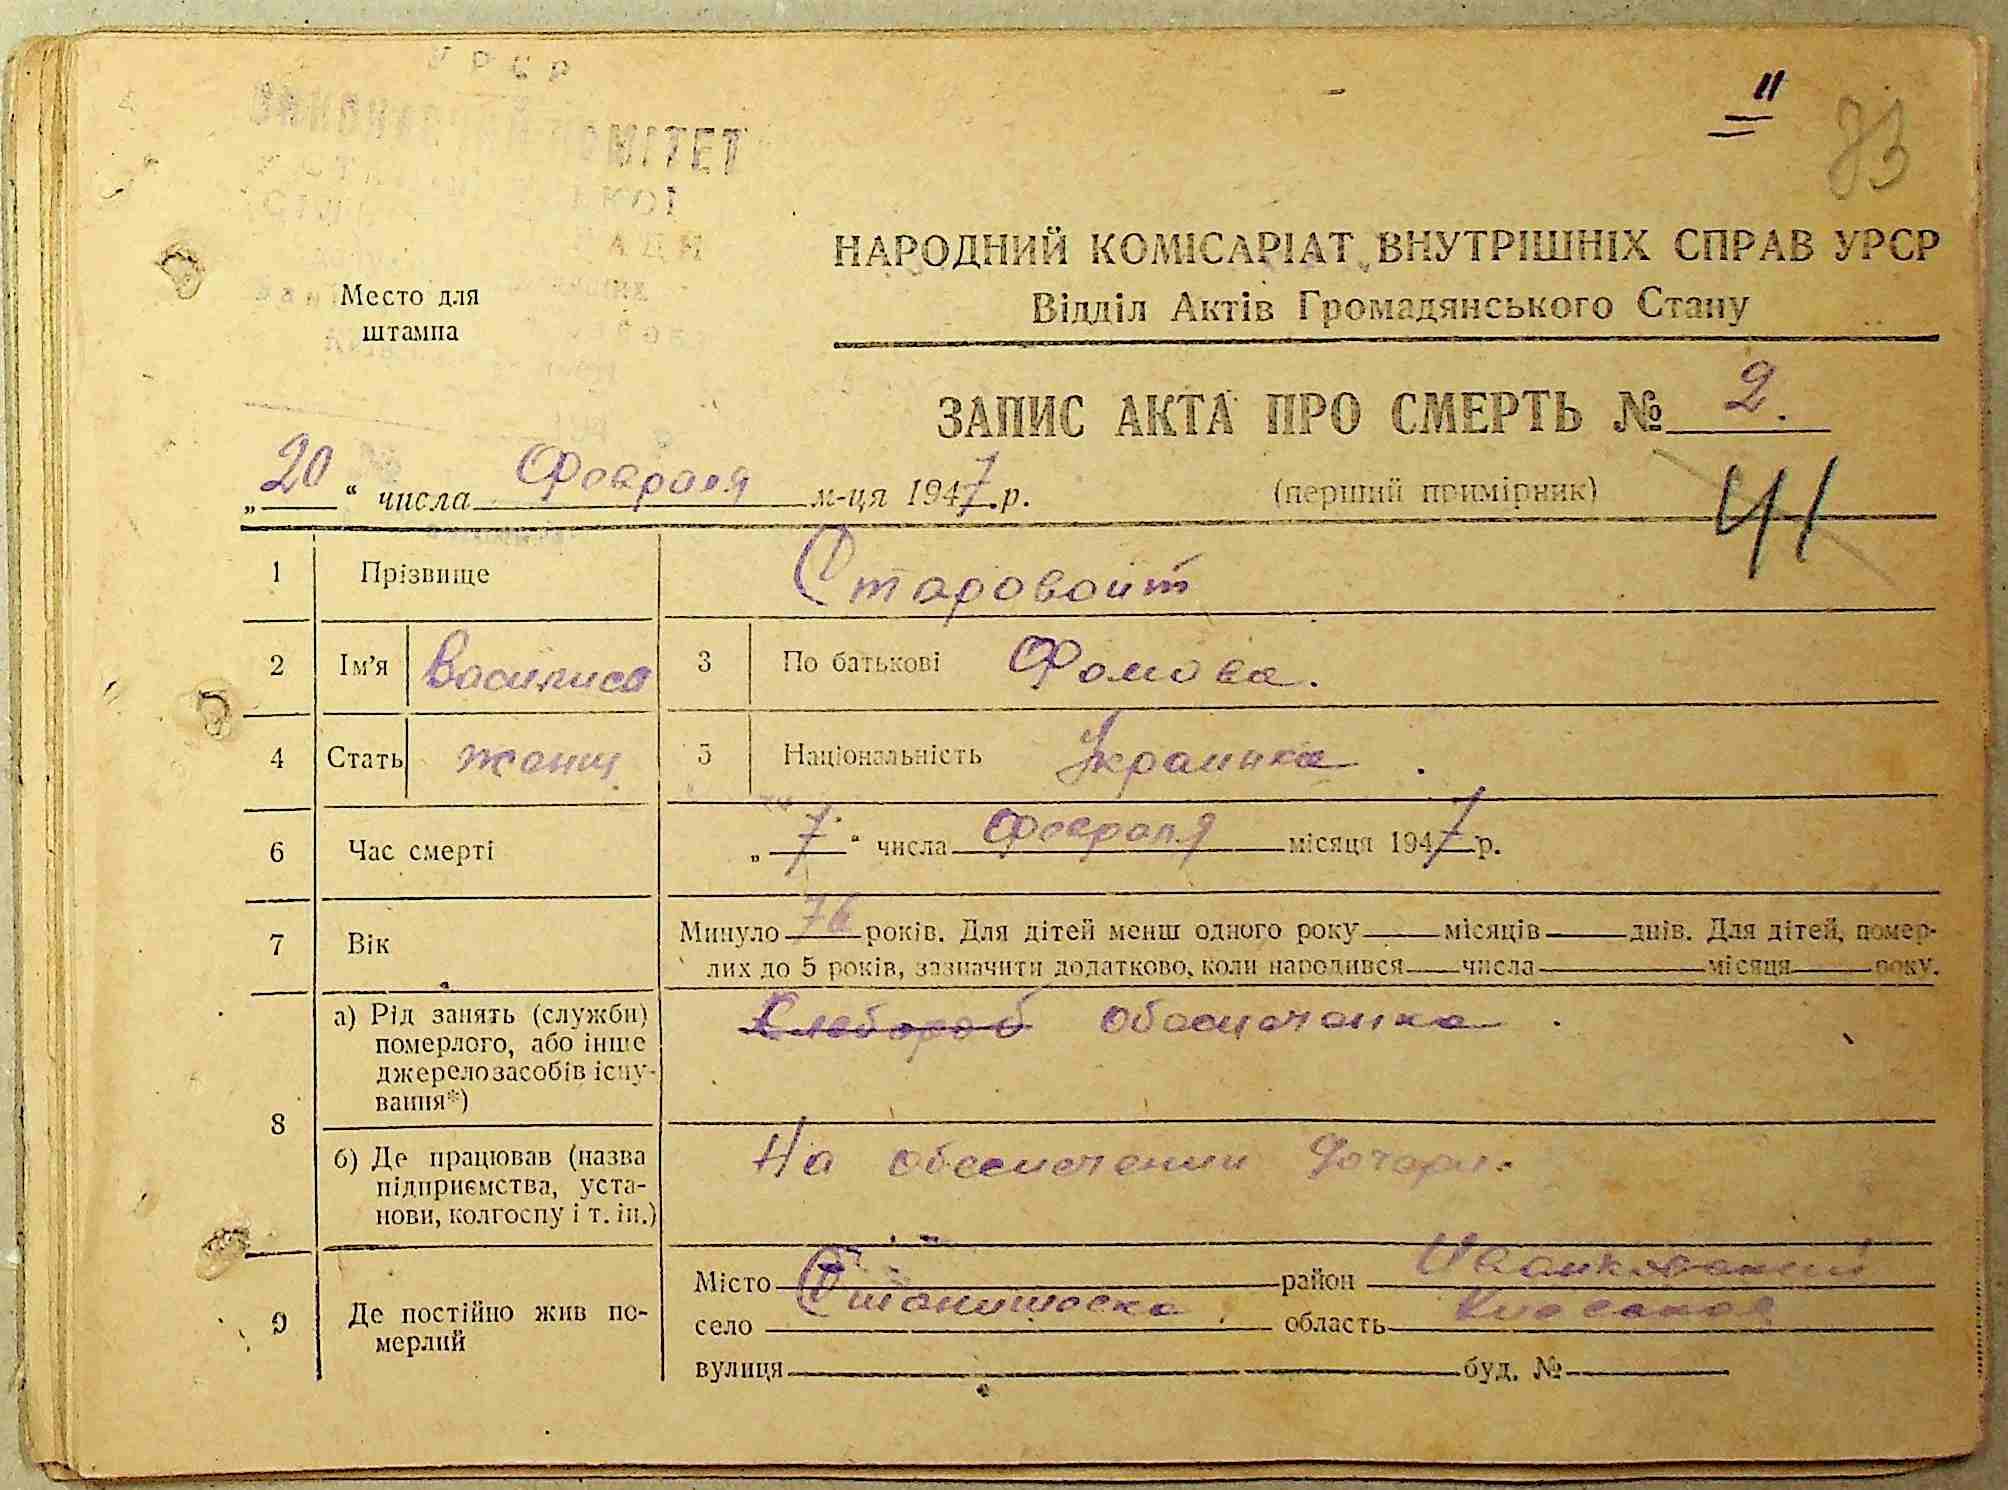 УРСР
ВИКОНАВЧИЙ КОМІТЕТ
"
83
НАРОДНИЙ КОМІСАРІАТ ВНУТРІШНІХ СПРАВ УРСР
Відділ Актів Громадянського Стану
Место для
штампа
ЗАПИС АКТА ПРО СМЕРТЬ № 2.
„20“ числа Февраля м-ця 1947 р. (перший примірник)
41
1 Прізвище Старовойт
2 Ім'я Василиса 3 По батькові Фомова.
4 Стать женщ 5 Національність Украинка.
6 Час смерті „7“ числа Февраля місяця 1947 р.
7 Вік Минуло 76 років. Для дітей менш одного року місяців днів. Для дітей, помер-
лих до 5 років, зазначити додатково, коли народився числа місяця року.
8 а) Рід занять (служби) померлого, або інше джерело засобів існу-вання*) Хлебороб обеспеченка.
б) Де працював (назва підприємства, уста-нови, колгоспу і т. ін.) На обеспечении дочери.
9 Де постійно жив по-мерлий
Місто район Иванковский
село Станишовка область Киевская
вулиця буд. №